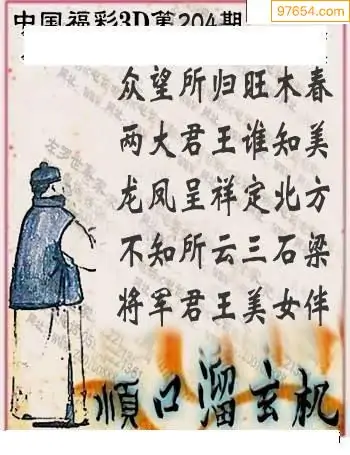 97654.com
中国福彩3D第204期
众望所归旺木春
两大君王谁知美
龙凤呈祥定北方
不知所云三石梁
将军君王美女伴
顺口溜玄机